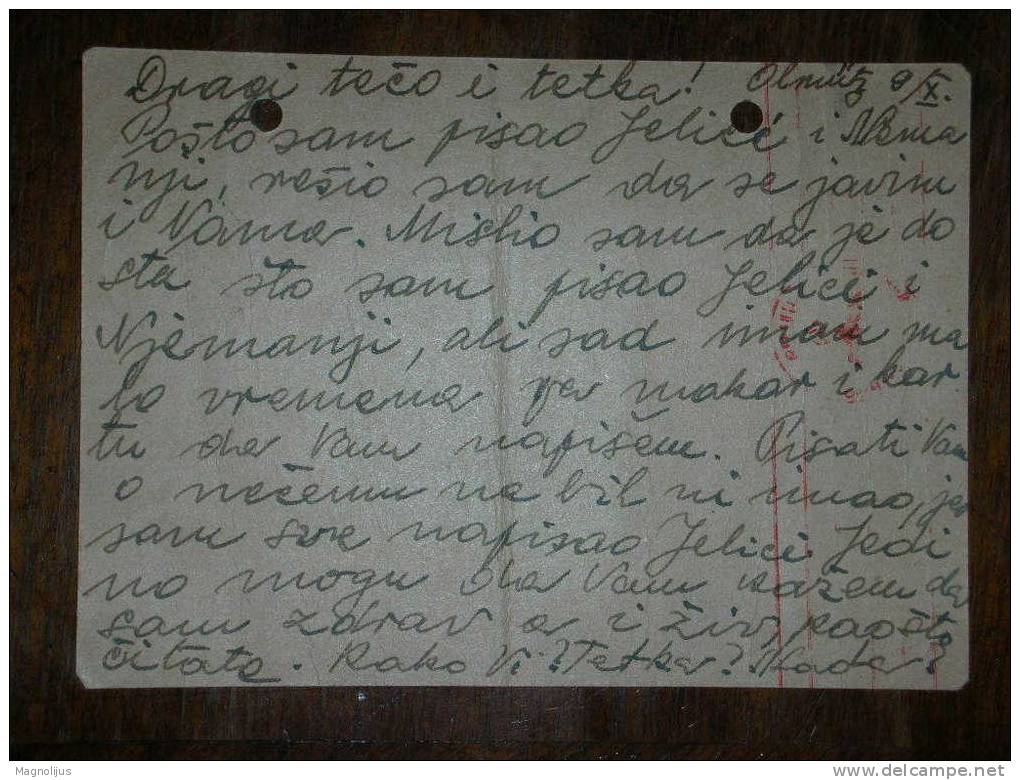 Dragi tečo i tetka! Olmütz 9/X.
Pošto sam pisao Jelici i Nema
nji, rešio sam da se javim
i Vama. Mislio sam da je do
sta što sam pisao Jelici i
Njemanji, ali sad imam ma
lo vremena pa makar i kar
tu da Vam napišem. Pisati Vam
o nečemu ne bih ni imao, jer
sam sve napisao Jelici. Jedi
no mogu da Vam kažem da
sam zdrav a i živ, kao što
čitate. Kako Vi? Tetka? Nada?
Magnolijus
www.delcampe.net